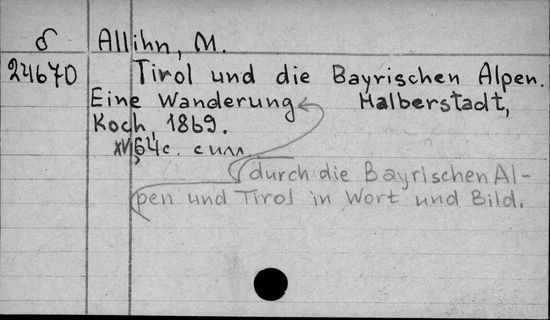 δ Allihn, M.
24670 Tirol und die Bayrischen Alpen.
Eine Wanderung Halberstadt,
Koch, 1869.
XVI, 64c. с илл.
durch die Bayrischen Al-
pen und Tirol in Wort und Bild.